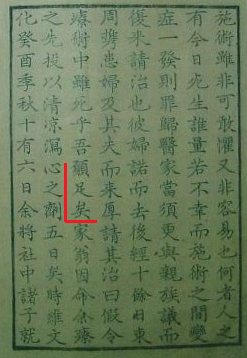 施術雖非可懼又非容易也何者人之
有今日先生誰量若不幸而施術之間變
症一發則罪歸醫家當須更與親族議而
後來請治也彼婦諾而去後經十餘日東
周甹患婦及其夫而來厚請其治曰假令
療術中雖死乎吾願足矣家翁因命余療
之先投以清涼瀉心之劑五日矣時維文
化癸酉季秋十有六日余將社中諸子就